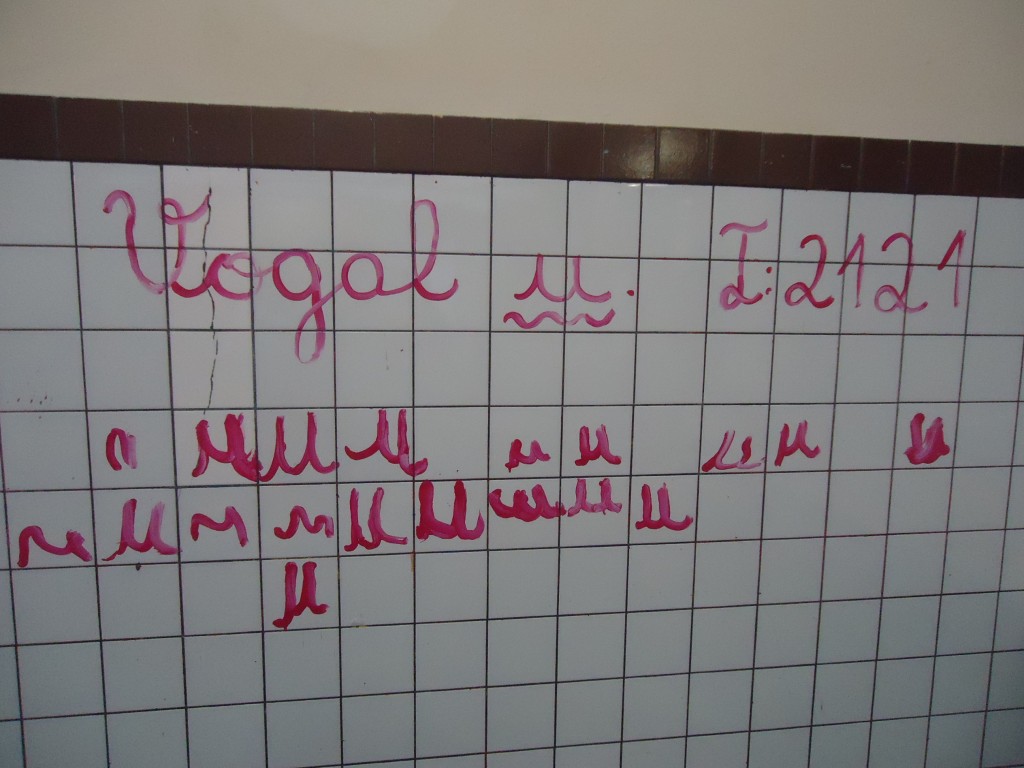 Vogal u. T: 2121
u u u u u u u u u
u u u u u u u u u
u